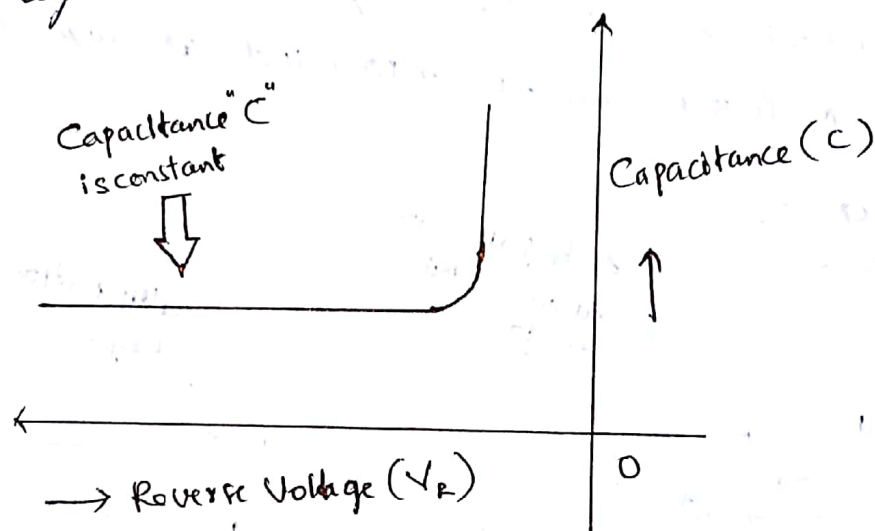 Capacitance "C"
is constant
Capacitance (C)
0
→ Reverse Voltage (V_R)